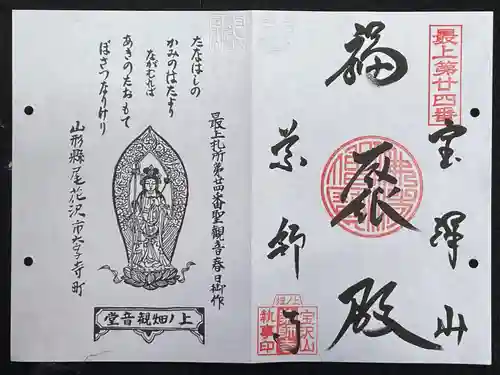 最上第廿四番
宝澤山
福聚殿
薬師寺
宝沢山
執事印
最上札所第廿四番聖観音春日御作
たなはしの
かみのはたより
ながむれば
あきのたおもて
ぼさつなりけり
山形縣尾花沢市大字寺町
上ノ畑観音堂